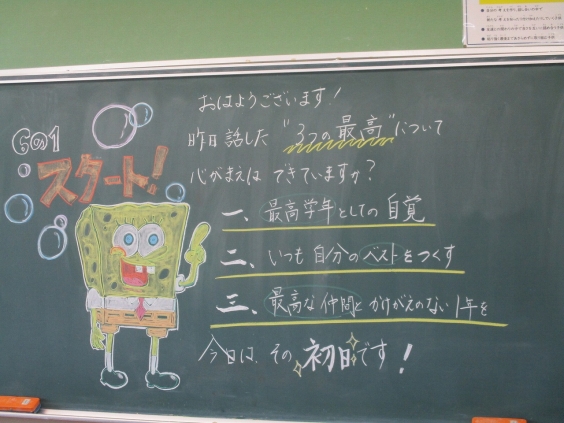 6の1
スタート!
おはようございます!
昨日話した "3つの最高"について
心がまえは できていますか?
一、最高学年としての自覚
二、いつも自分のベストをつくす
三、最高な仲間とかけがえのない1年を
今日は、その初日です!